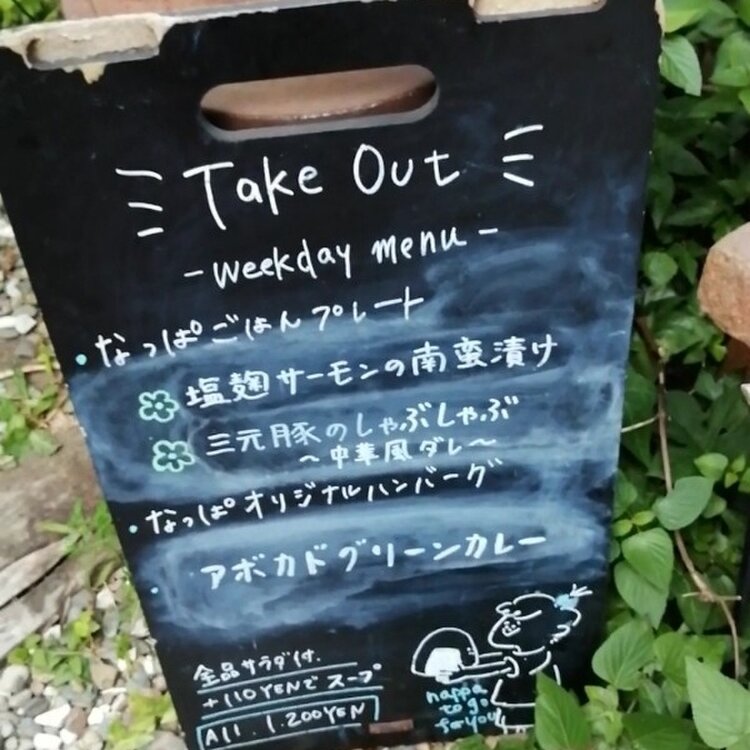 Take Out
- weekday menu -
・なっぱごはんプレート
塩麹サーモンの南蛮漬け
三元豚のしゃぶしゃぶ
〜中華風ダレ〜
・なっぱオリジナルハンバーグ
・アボカドグリーンカレー
全品サラダ付.
+110YENでスープ
All 1.200YEN
nappa
to go
for you